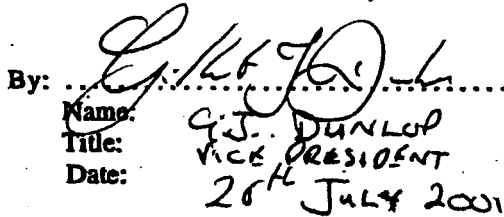 By:
Name: G.J. DUNLOP
Title: VICE PRESIDENT
Date: 26th July 2001